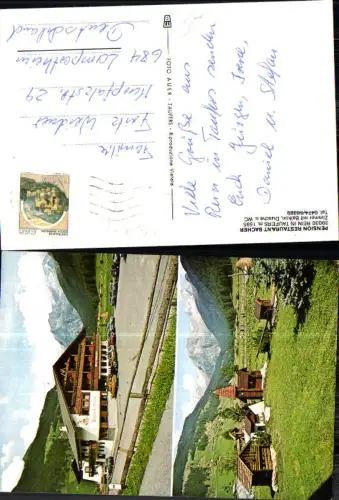 PENSION RESTAURANT BACHER
39030 REIN IN TAUFERS m. 1595
Zimmer mit Balkon, Dusche u. WC
Tel. 0474/
Viele Grüße aus
Rein in Taufers senden
Euch
Daniel u. Stefan
FOTO AUER - TAUFERS - Riproduzione Vietata
Familie
Fritz
29
684 Lampertheim
Deutschland